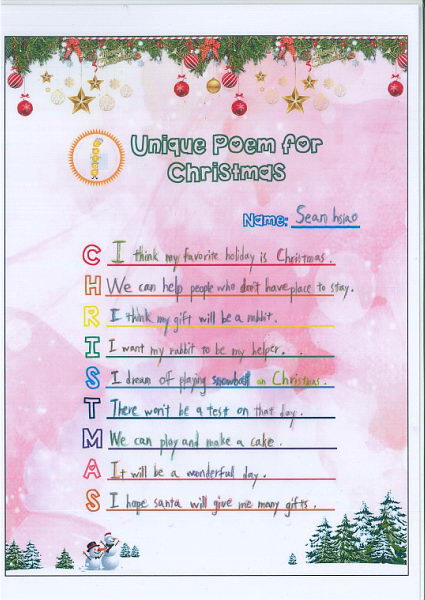 Unique Poem for
Christmas
Name: Sean hsiao
C I think my favorite holiday is Christmas.
H We can help people who don't have place to stay.
R I think my gift will be a rabbit.
I I want my rabbit to be my helper.
S I dream of playing snowball on Christmas.
T There won't be a test on that day.
M We can play and make a cake.
A It will be a wonderful day.
S I hope santa will give me many gifts.